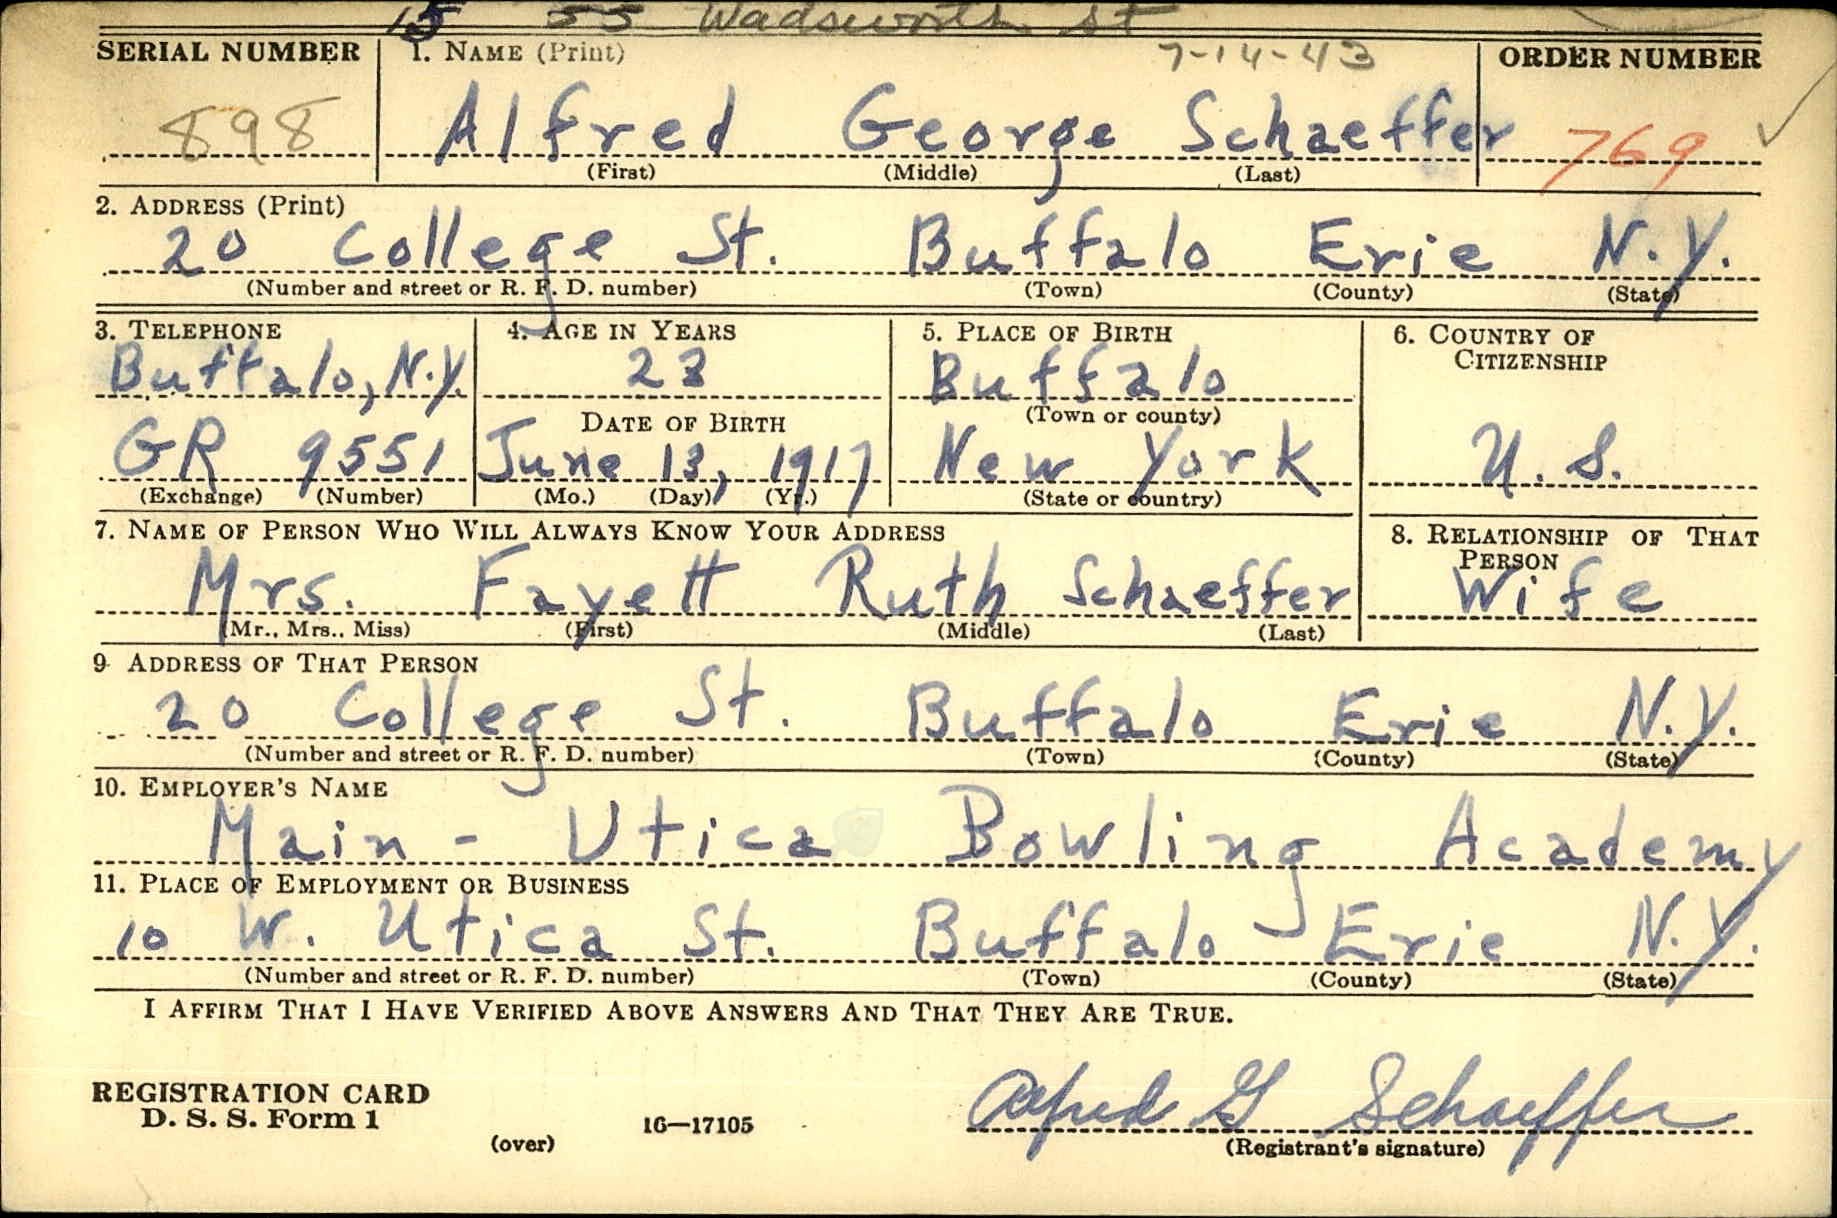 15 55 Wadsworth St
SERIAL NUMBER 1. NAME (Print) 7-14-43 ORDER NUMBER
898 Alfred George Schaeffer 769
(First) (Middle) (Last)
2. ADDRESS (Print)
20 College St. Buffalo Erie N.Y.
(Number and street or R. F. D. number) (Town) (County) (State)
3. TELEPHONE 4. AGE IN YEARS 5. PLACE OF BIRTH 6. COUNTRY OF
CITIZENSHIP
Buffalo, N.Y. 23 Buffalo
DATE OF BIRTH (Town or county)
GR 9551 June 13, 1917 New York U.S.
(Exchange) (Number) (Mo.) (Day) (Yr.) (State or country)
7. NAME OF PERSON WHO WILL ALWAYS KNOW YOUR ADDRESS 8. RELATIONSHIP OF THAT
PERSON
Mrs. Fayett Ruth Schaeffer Wife
(Mr., Mrs., Miss) (First) (Middle) (Last)
9. ADDRESS OF THAT PERSON
20 College St. Buffalo Erie N.Y.
(Number and street or R. F. D. number) (Town) (County) (State)
10. EMPLOYER'S NAME
Main - Utica Bowling Academy
11. PLACE OF EMPLOYMENT OR BUSINESS
10 W. Utica St. Buffalo Erie N.Y.
(Number and street or R. F. D. number) (Town) (County) (State)
I AFFIRM THAT I HAVE VERIFIED ABOVE ANSWERS AND THAT THEY ARE TRUE.
REGISTRATION CARD
D. S. S. Form 1 16—17105 Alfred G Schaeffer
(over) (Registrant's signature)